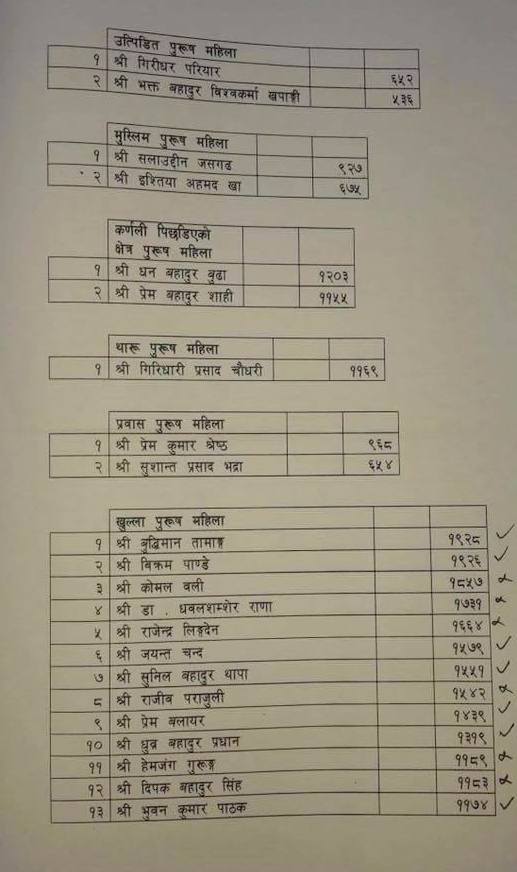 उत्पिडित पुरूष महिला
१ श्री गिरीधर परियार ६५२
२ श्री भक्त बहादुर विश्वकर्मा खपाङ्गी ५३६
मुस्लिम पुरूष महिला
१ श्री सलाउद्दीन जसगढ ९२७
२ श्री इश्तिया अहमद खा ६७५
कर्णली पिछडिएको
क्षेत्र पुरूष महिला
१ श्री धन बहादुर बुढा १२०३
२ श्री प्रेम बहादुर शाही ११५५
थारू पुरूष महिला
१ श्री गिरिधारी प्रसाद चौधरी ११६९
प्रवास पुरूष महिला
१ श्री प्रेम कुमार श्रेष्ठ ९६८
२ श्री सुशान्त प्रसाद भद्रा ६५४
खुल्ला पुरूष महिला
१ श्री बुद्धिमान तामाङ्ग १९२८
२ श्री बिक्रम पाण्डे १९२६
३ श्री कोमल वली १८५७
४ श्री डा . धवलशम्शेर राणा १७३१
५ श्री राजेन्द्र लिङ्गदेन १६६४
६ श्री जयन्त चन्द १५७९
७ श्री सुनिल बहादुर थापा १५५१
८ श्री राजीव पराजुली १५४२
९ श्री प्रेम बलायर १४३९
१० श्री धुव्र बहादुर प्रधान १३१९
११ श्री हेमजंग गुरूङ्ग ११८९
१२ श्री दिपक बहादुर सिंह ११८३
१३ श्री भुवन कुमार पाठक ११७४